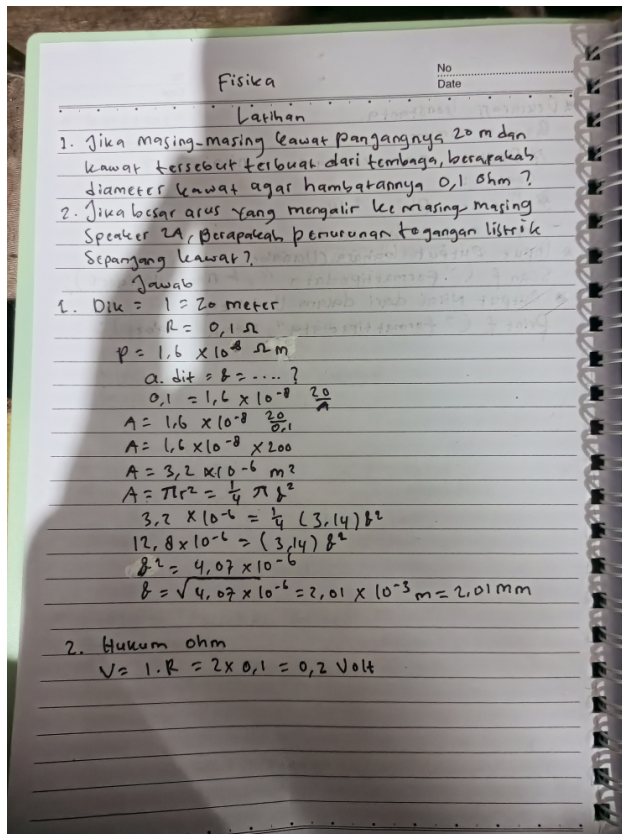 No
Date
Fisika
Latihan
1. Jika masing-masing kawat pangangnya 20 m dan
kawat tersebut terbuat dari tembaga, berapakah
diameter kawat agar hambatannya 0,1 ohm ?
2. Jika besar arus yang mengalir ke masing masing
Speaker 2A, Berapakah penurunan tegangan listrik
Sepanjang kawat?
Jawab
1. Dik = l = 20 meter
R = 0,1 Ω
p = 1,6 × 10⁻⁸ Ω m
a. dit = d = .... ?
0,1 = 1,6 × 10⁻⁸ 20/A
A = 1,6 × 10⁻⁸ 20/0,1
A = 1,6 × 10⁻⁸ × 200
A = 3,2 × 10⁻⁶ m²
A = πr² = 1/4 π d²
3,2 × 10⁻⁶ = 1/4 (3,14) d²
12,8 × 10⁻⁶ = (3,14) d²
d² = 4,07 × 10⁻⁶
d = √4,07 × 10⁻⁶ = 2,01 × 10⁻³ m = 2,01 mm
2. Hukum ohm
V = I . R = 2 × 0,1 = 0,2 Volt